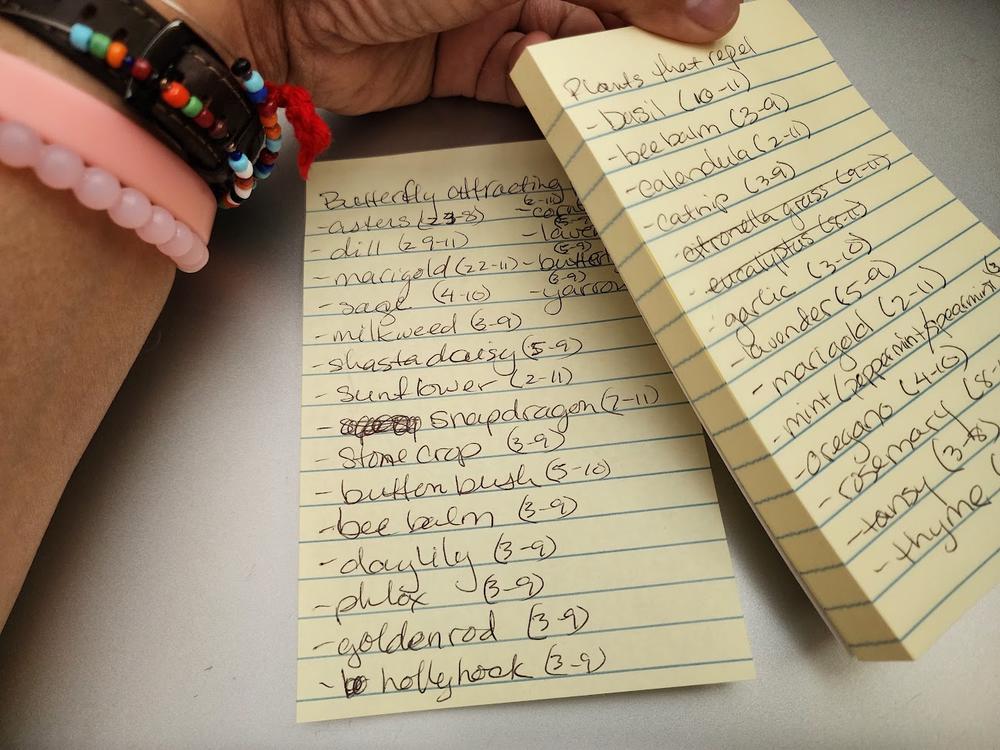 Butterfly attracting
- asters (2 3-8)
(2-11)
- dill (2 9-11)
(5-9)
- marigold (2 2-11)
(5-9)
- sage (4-10)
(3-9)
- yarrow
- milkweed (3-9)
- shasta daisy (5-9)
- sunflower (2-11)
- snapdragon (2-11)
- stone crop (3-9)
- button bush (5-10)
- bee balm (3-9)
- daylily (3-9)
- phlox (3-9)
- goldenrod (3-9)
- hollyhock (3-9)
Plants that repel
- basil (10-11)
- bee balm (3-9)
- calandula (2-11)
- catnip (3-9)
- citronella grass (9-11)
- eucalyptus (8-10)
- garlic (3-10)
- lavander (5-9)
- marigold (2-11)
- mint (peppermint/spearmint)
- oregano (4-10)
- rosemary (8-
- tansy (3-8)
- thyme (